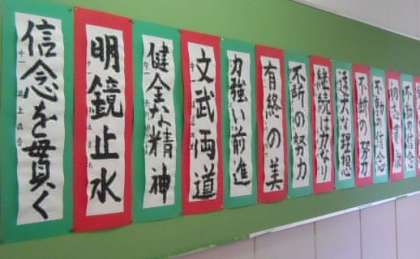 信念を貫く
明鏡止水
健全な精神
文武両道
力強い前進
有終の美
不断の努力
継続は力なり
遠大な理想
不断の努力
不動の信念